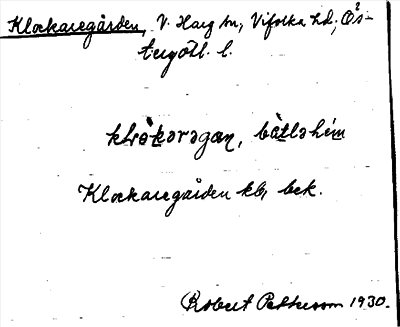 Klockaregården, V. Harg sn, Vifolka hd, Ös-
tergötl. l.
klωkaragaɳ, bätləhém
Klockaregården kbr bek.
Robert Pettersson 1930.